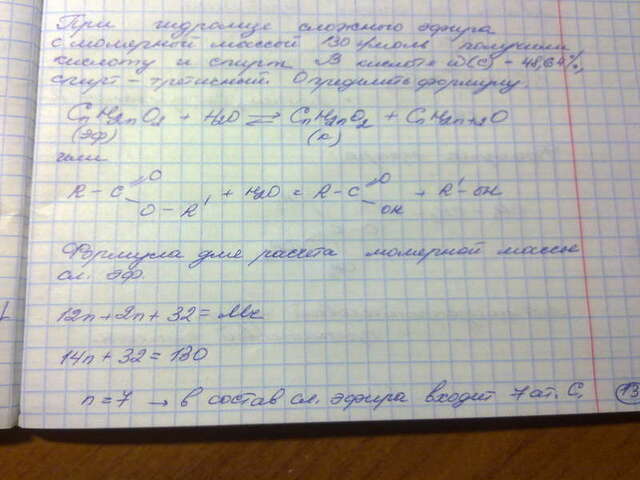 При гидролизе сложного эфира
с молярной массой 130 г/моль получили
кислоту и спирт. В кислоте ω(C) - 48,64%,
спирт - третичный. Определить формулу.
CnH2nO2 + H2O ⇌ CnH2nO2 + CnH2n+2O
(эф) (к)
или
R - C =O O - R' + H2O = R - C =O OH + R' - OH
Формула для расчета молярной массы
сл. эф.
12n + 2n + 32 = Mx
14n + 32 = 130
n = 7 → в состав сл. эфира входит 7 ат. C.
13